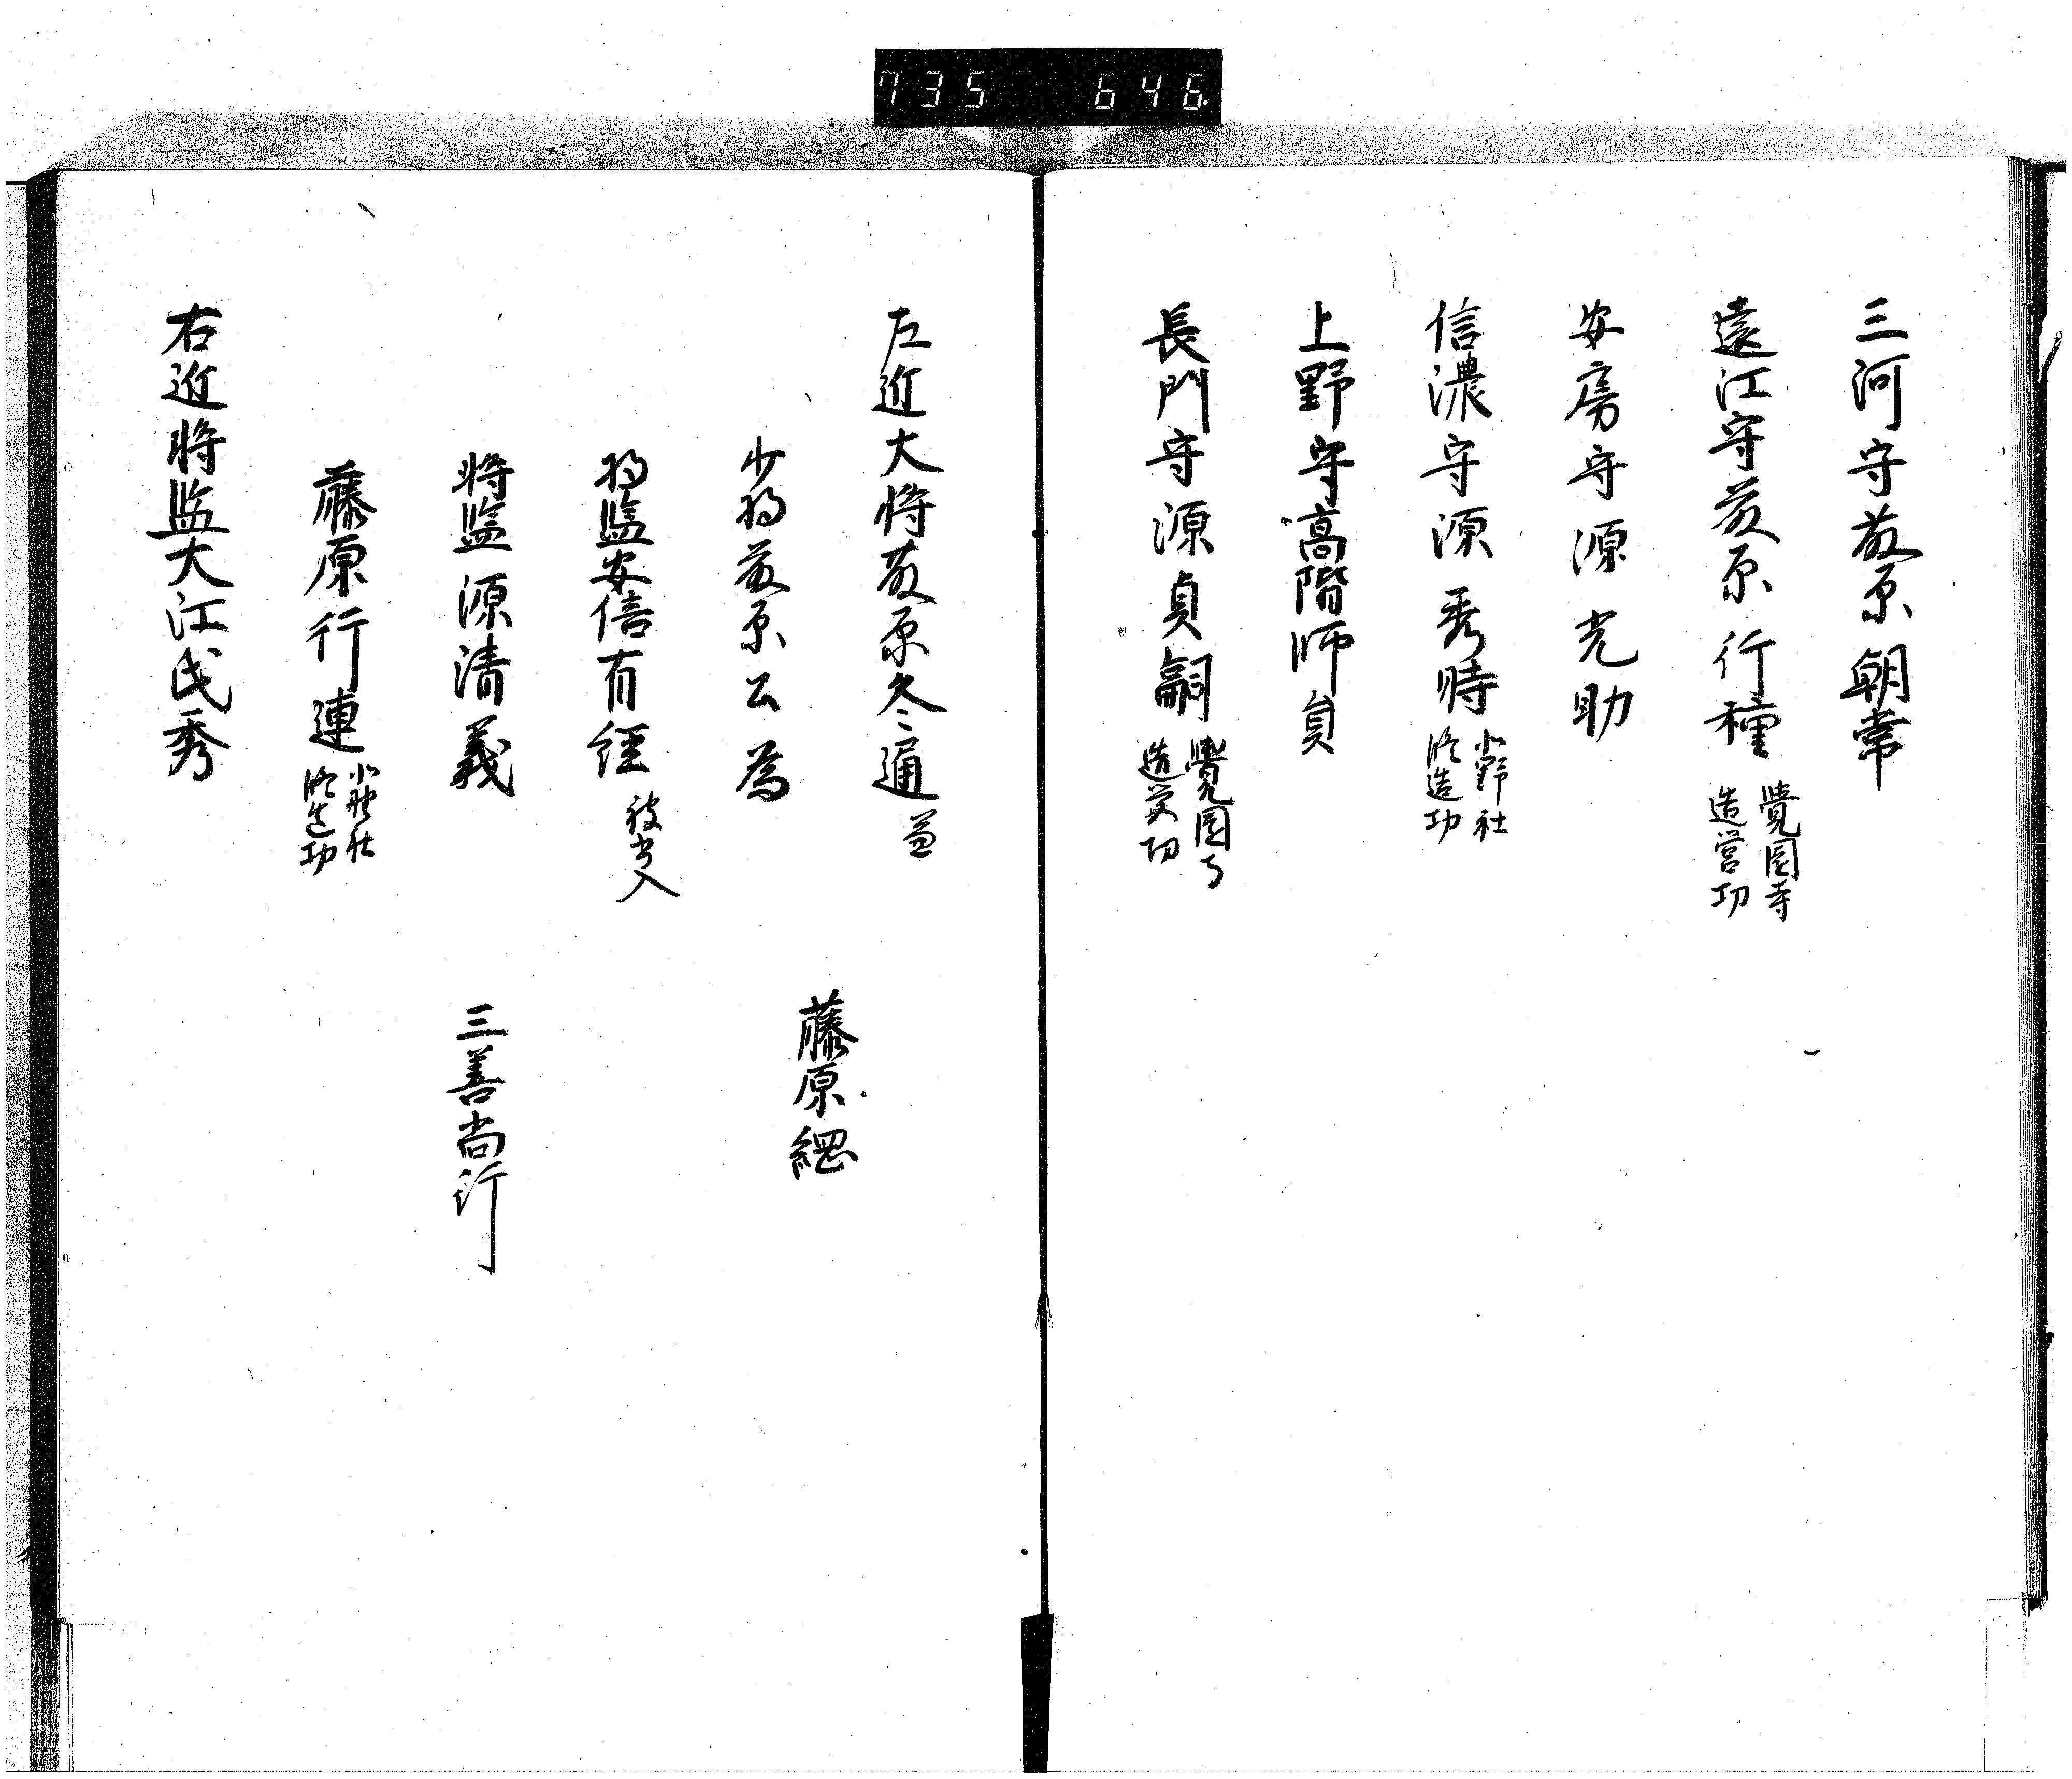 735 646
三河守藤原朝常
遠江守藤原行種 覺園寺
造営功
安房守源光助
信濃守源秀時 小野社
修造功
上野守高階師貞
長門守源貞嗣 覺園寺
造営功
左近大将藤原冬通 兼
少将藤原公為
藤原綱
将監安倍有經
将監源清義
三善尚行
藤原行連 小野社
修造功
右近将監大江氏秀